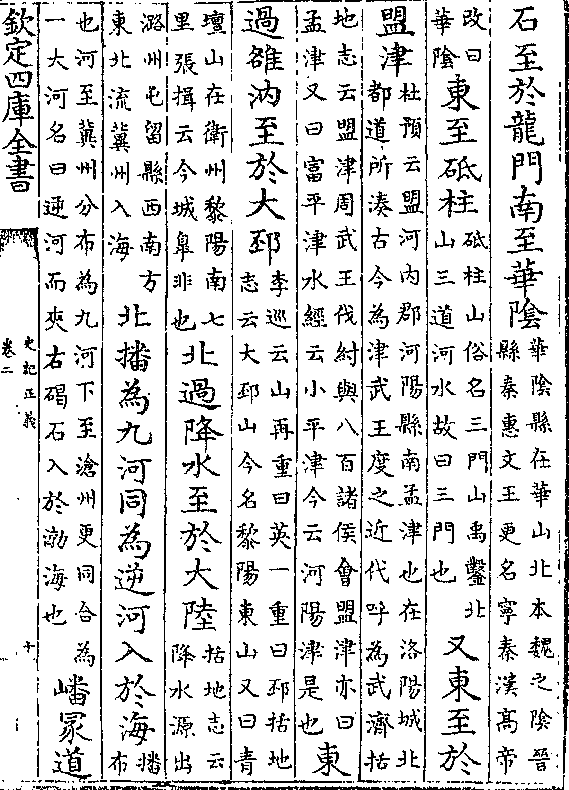 石至於龍門南至華陰華陰縣在華山北本魏之陰晉縣秦惠文王更名寧秦漢髙帝
改曰華陰東至砥柱砥柱山俗名三門山禹鑿北山三道河水故曰三門也又東至於
盟津杜預云盟河内郡河陽縣南孟津也在洛陽城北都道所湊古今為津武王度之近代呼為武濟括
地志云盟津周武王伐紂與八百諸侯會盟津亦曰孟津又曰富平津水經云小平津今云河陽津是也東
過雒汭至於大邳李廵云山再重曰英一重曰邳括地志云大邳山今名黎陽東山又曰青
壇山在衛州黎陽南七里張揖云今城臯非也北過降水至於大陸括地志云降水源出
潞州屯留縣西南方東北流冀州入海北播為九河同為逆河入於海播布
也河至冀州分布為九河下至滄州更同合為一大河名曰逆河而夾右碣石入於渤海也嶓冢道
欽定四庫全書
史記正義
卷二
十